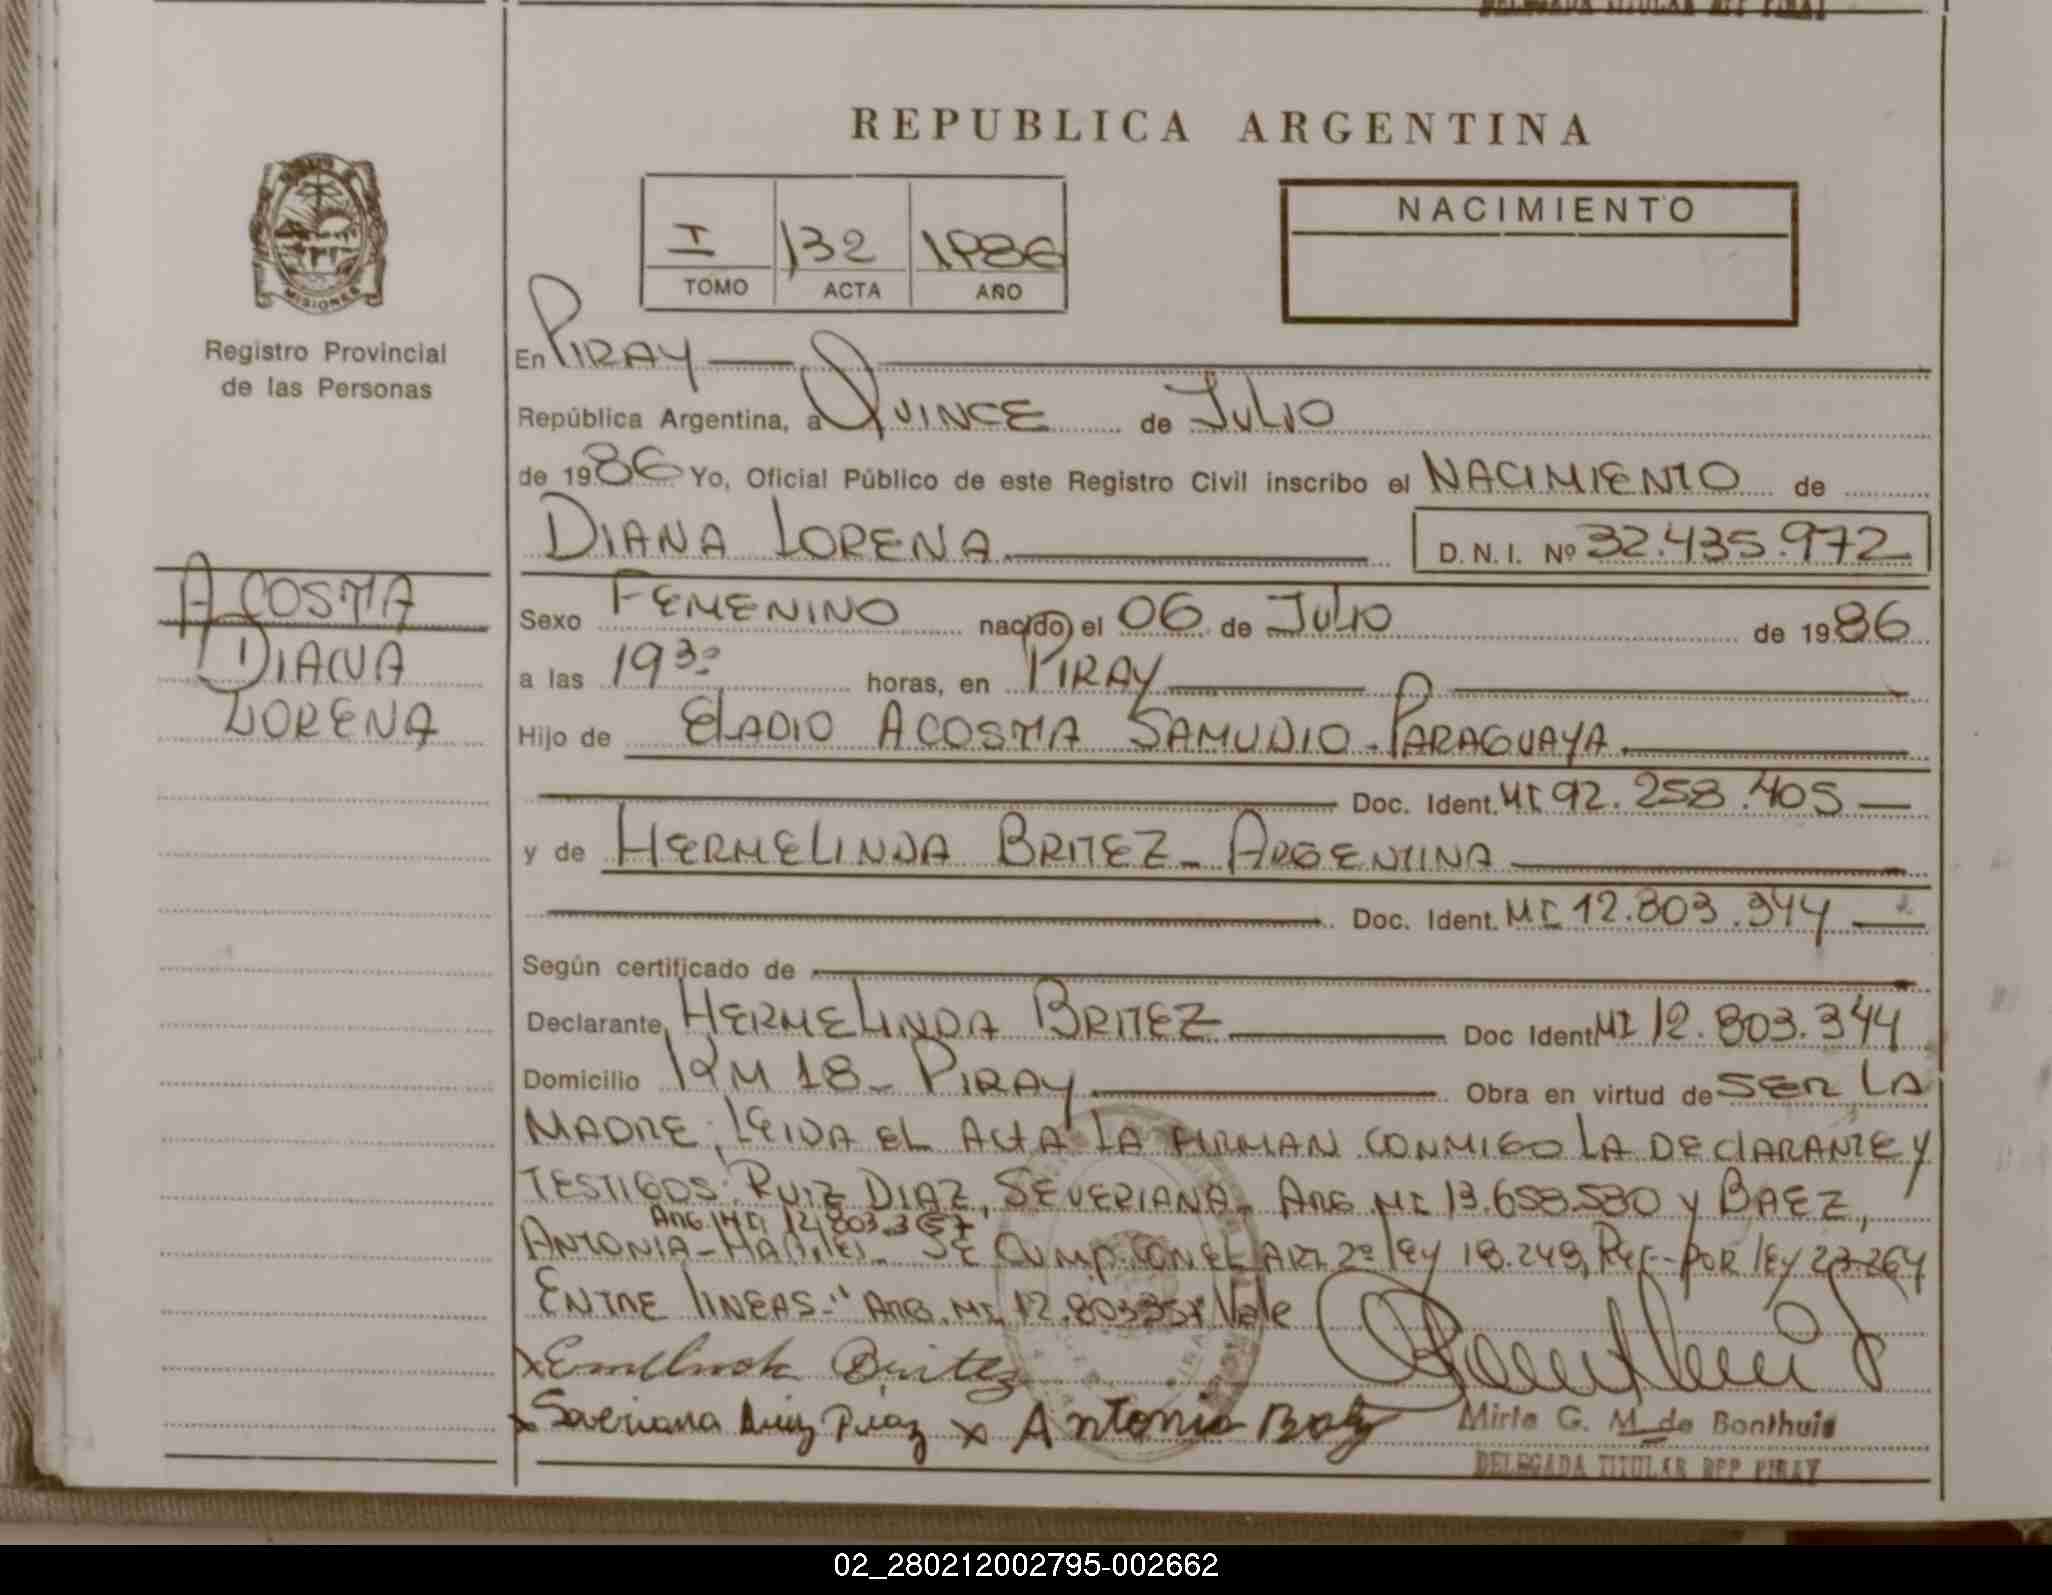 DELEGADA TITULAR RPP PIRAY
REPUBLICA ARGENTINA
MISIONES
Registro Provincial
de las Personas
I 132 1986
TOMO ACTA AÑO
NACIMIENTO
En PIRAY
República Argentina, a QUINCE de JULIO
de 1986 Yo, Oficial Público de este Registro Civil inscribo el NACIMIENTO de
DIANA LORENA D.N.I. Nº 32.435.972
ACOSTA
DIANA
LORENA
Sexo FEMENINO nacido el 06 de JULIO de 1986
a las 19 30 horas, en PIRAY
Hijo de ELADIO ACOSTA SAMUDIO - PARAGUAYA
Doc. Ident. MI 92.258.405
y de HERMELINDA BRITEZ - ARGENTINA
Doc. Ident. MI 12.803.344
Según certificado de
Declarante HERMELINDA BRITEZ Doc Ident MI 12.803.344
Domicilio KM 18 - PIRAY Obra en virtud de SER LA
MADRE; LEIDA EL ACTA LA FIRMAN CONMIGO LA DECLARANTE Y
TESTIGOS: RUIZ DIAZ, SEVERIANA - ARG. MI 13.658.580 y BAEZ,
ARG. MI 12.803.357
ANTONIA - SE CUMP. CON EL ART. 2º LEY 18.248, POR LEY
ENTRE LINEAS - "ARG. MI. 12.803357" Vale
x Britez
x Severiana Ruiz Diaz x Antonia Baez
Mirta G. M. de Bonthuis
DELEGADA TITULAR RPP PIRAY
02_280212002795-002662